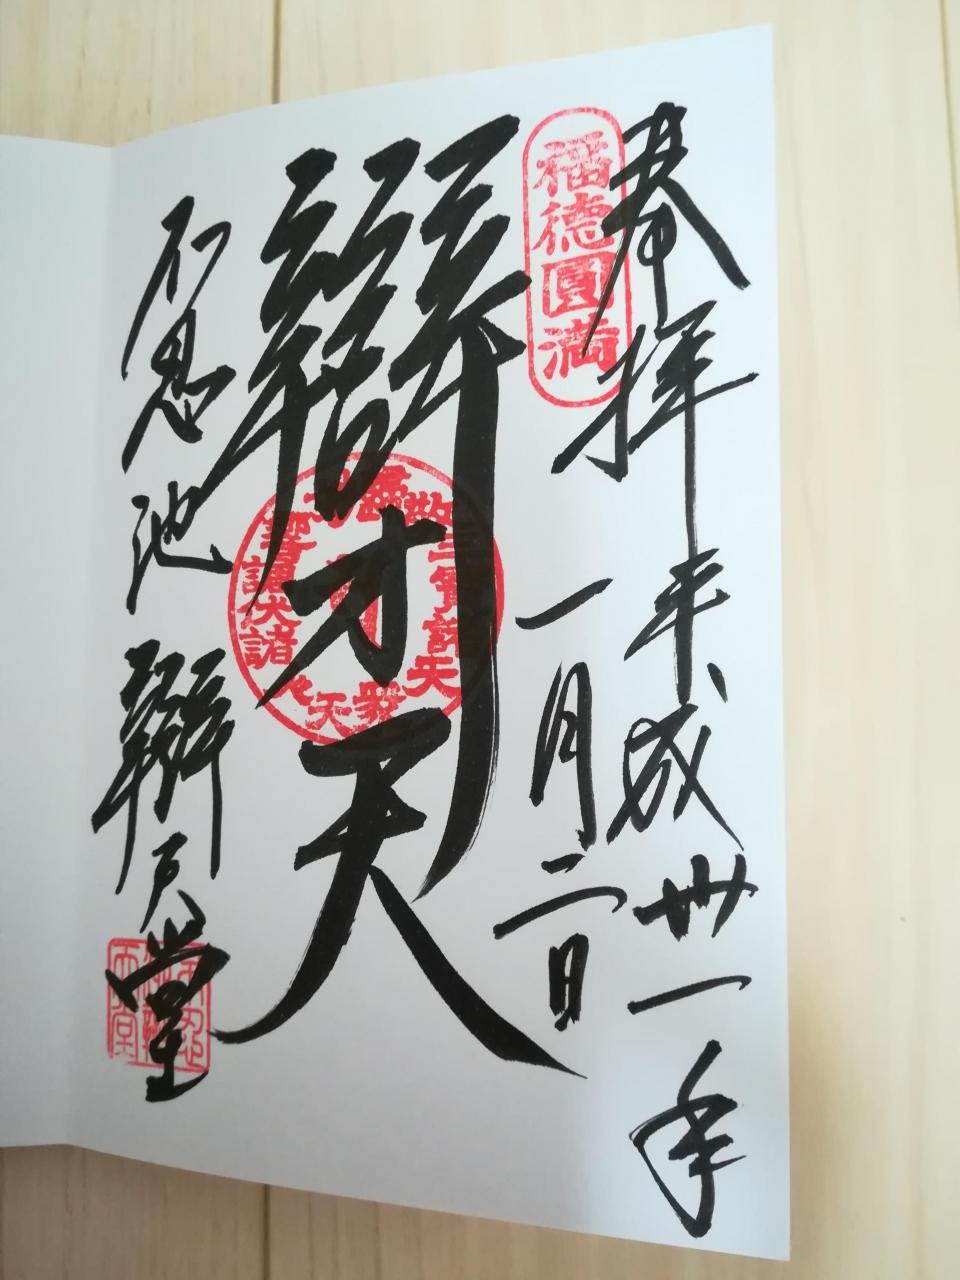 奉拝 平成卅一年
一月二日
福德圓満
辯才天
不忍池 辯天堂